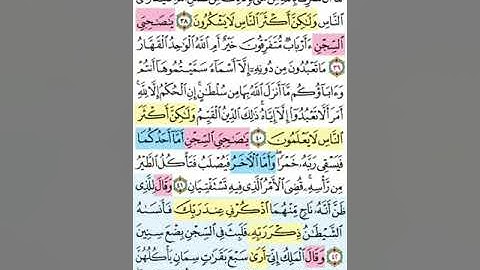 النَّاسِ وَلَـٰكِنَّ أَكْثَرَ النَّاسِ لَا يَشْكُرُونَ ٣٨ يَـٰصَـٰحِبَىِ
السِّجْنِ ءَأَرْبَابٌ مُّتَفَرِّقُونَ خَيْرٌ أَمِ اللَّهُ الْوَٰحِدُ الْقَهَّارُ
٣٩ مَا تَعْبُدُونَ مِن دُونِهِۦٓ إِلَّآ أَسْمَآءً سَمَّيْتُمُوهَآ أَنتُمْ
وَءَابَآؤُكُم مَّآ أَنزَلَ اللَّهُ بِهَا مِن سُلْطَـٰنٍ ۚ إِنِ الْحُكْمُ إِلَّا لِلَّهِ ۚ
أَمَرَ أَلَّا تَعْبُدُوٓا۟ إِلَّآ إِيَّاهُ ۚ ذَٰلِكَ الدِّينُ الْقَيِّمُ وَلَـٰكِنَّ أَكْثَرَ
النَّاسِ لَا يَعْلَمُونَ ٤٠ يَـٰصَـٰحِبَىِ السِّجْنِ أَمَّآ أَحَدُكُمَا
فَيَسْقِى رَبَّهُۥ خَمْرًا ۖ وَأَمَّا الْـَٔاخَرُ فَيُصْلَبُ فَتَأْكُلُ الطَّيْرُ
مِن رَّأْسِهِۦ ۚ قُضِىَ الْأَمْرُ الَّذِى فِيهِ تَسْتَفْتِيَانِ ٤١ وَقَالَ لِلَّذِى
ظَنَّ أَنَّهُۥ نَاجٍ مِّنْهُمَا اذْكُرْنِى عِندَ رَبِّكَ فَأَنسَىٰهُ
الشَّيْطَـٰنُ ذِكْرَ رَبِّهِۦ فَلَبِثَ فِى السِّجْنِ بِضْعَ سِنِينَ
٤٢ وَقَالَ الْمَلِكُ إِنِّىٓ أَرَىٰ سَبْعَ بَقَرَٰتٍ سِمَانٍ يَأْكُلُهُنَّ